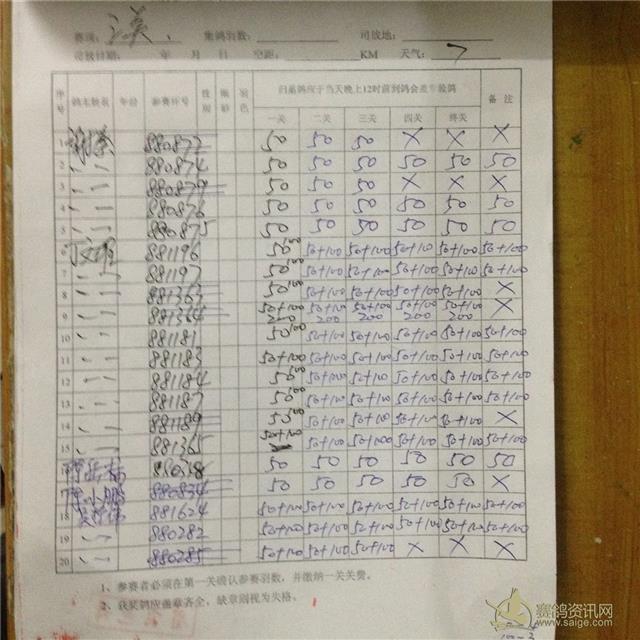 赛项： 集鸽羽数： 司放地：
司放日期： 年 月 日 空距： KM 天气：
序号 鸽主姓名 年龄 参赛环号 性别 眼砂 羽色 归巢鸽应于当天晚上12时前到鸽会盖 鸽 备注
一关 二关 三关 四关 终关
1 880872 50 50 50 × × ×
2 〃 880874 50 50 50 50 50 50
3 〃 880879 50 50 50 × × ×
4 〃 880876 50 50 50 50 50 50
5 〃 880875 50 50 50 50 50 50
6 881196 50+100 50+100 50+100 50+100 50+100
7 〃 881197 50+100 50+100 50+100 50+100 50+100
8 〃 881363 50+100 50+100 50+100 50+100 ×
9 〃 881364 50+100 200 50+100 200 50+100 200 50+100 200 50+100 200 ×
10 〃 881181 50+100 50+100 50+100 50+100 50+100
11 〃 881183 50+100 50+100 50+100 50+100 50+100 50+100
12 〃 881184 50+100 50+100 50+100 50+100 50+100
13 〃 881187 50+100 50+100 50+100 50+100 50+100
14 〃 881189 50+100 50+100 50+100 50+100 ×
15 〃 881365 50+100 50+100 50+100 50+100 50+100 50+100
50 50 50 50 50 50
17 小鹏 880834 50 50 50 50 50 ×
18 881624 50+100 50+100 50+100 50+100 50+100 50+100
19 〃 880282 50+100 50+100 50+100 50+100 50+100 50+100
20 〃 880285 50+100 50+100 50+100 × × ×
1、参赛者必须在第一关确认参赛羽数，并缴纳一关关费。
2、获奖鸽应盖章齐全，缺章则视为失格。
赛鸽资讯网
www.saige.com